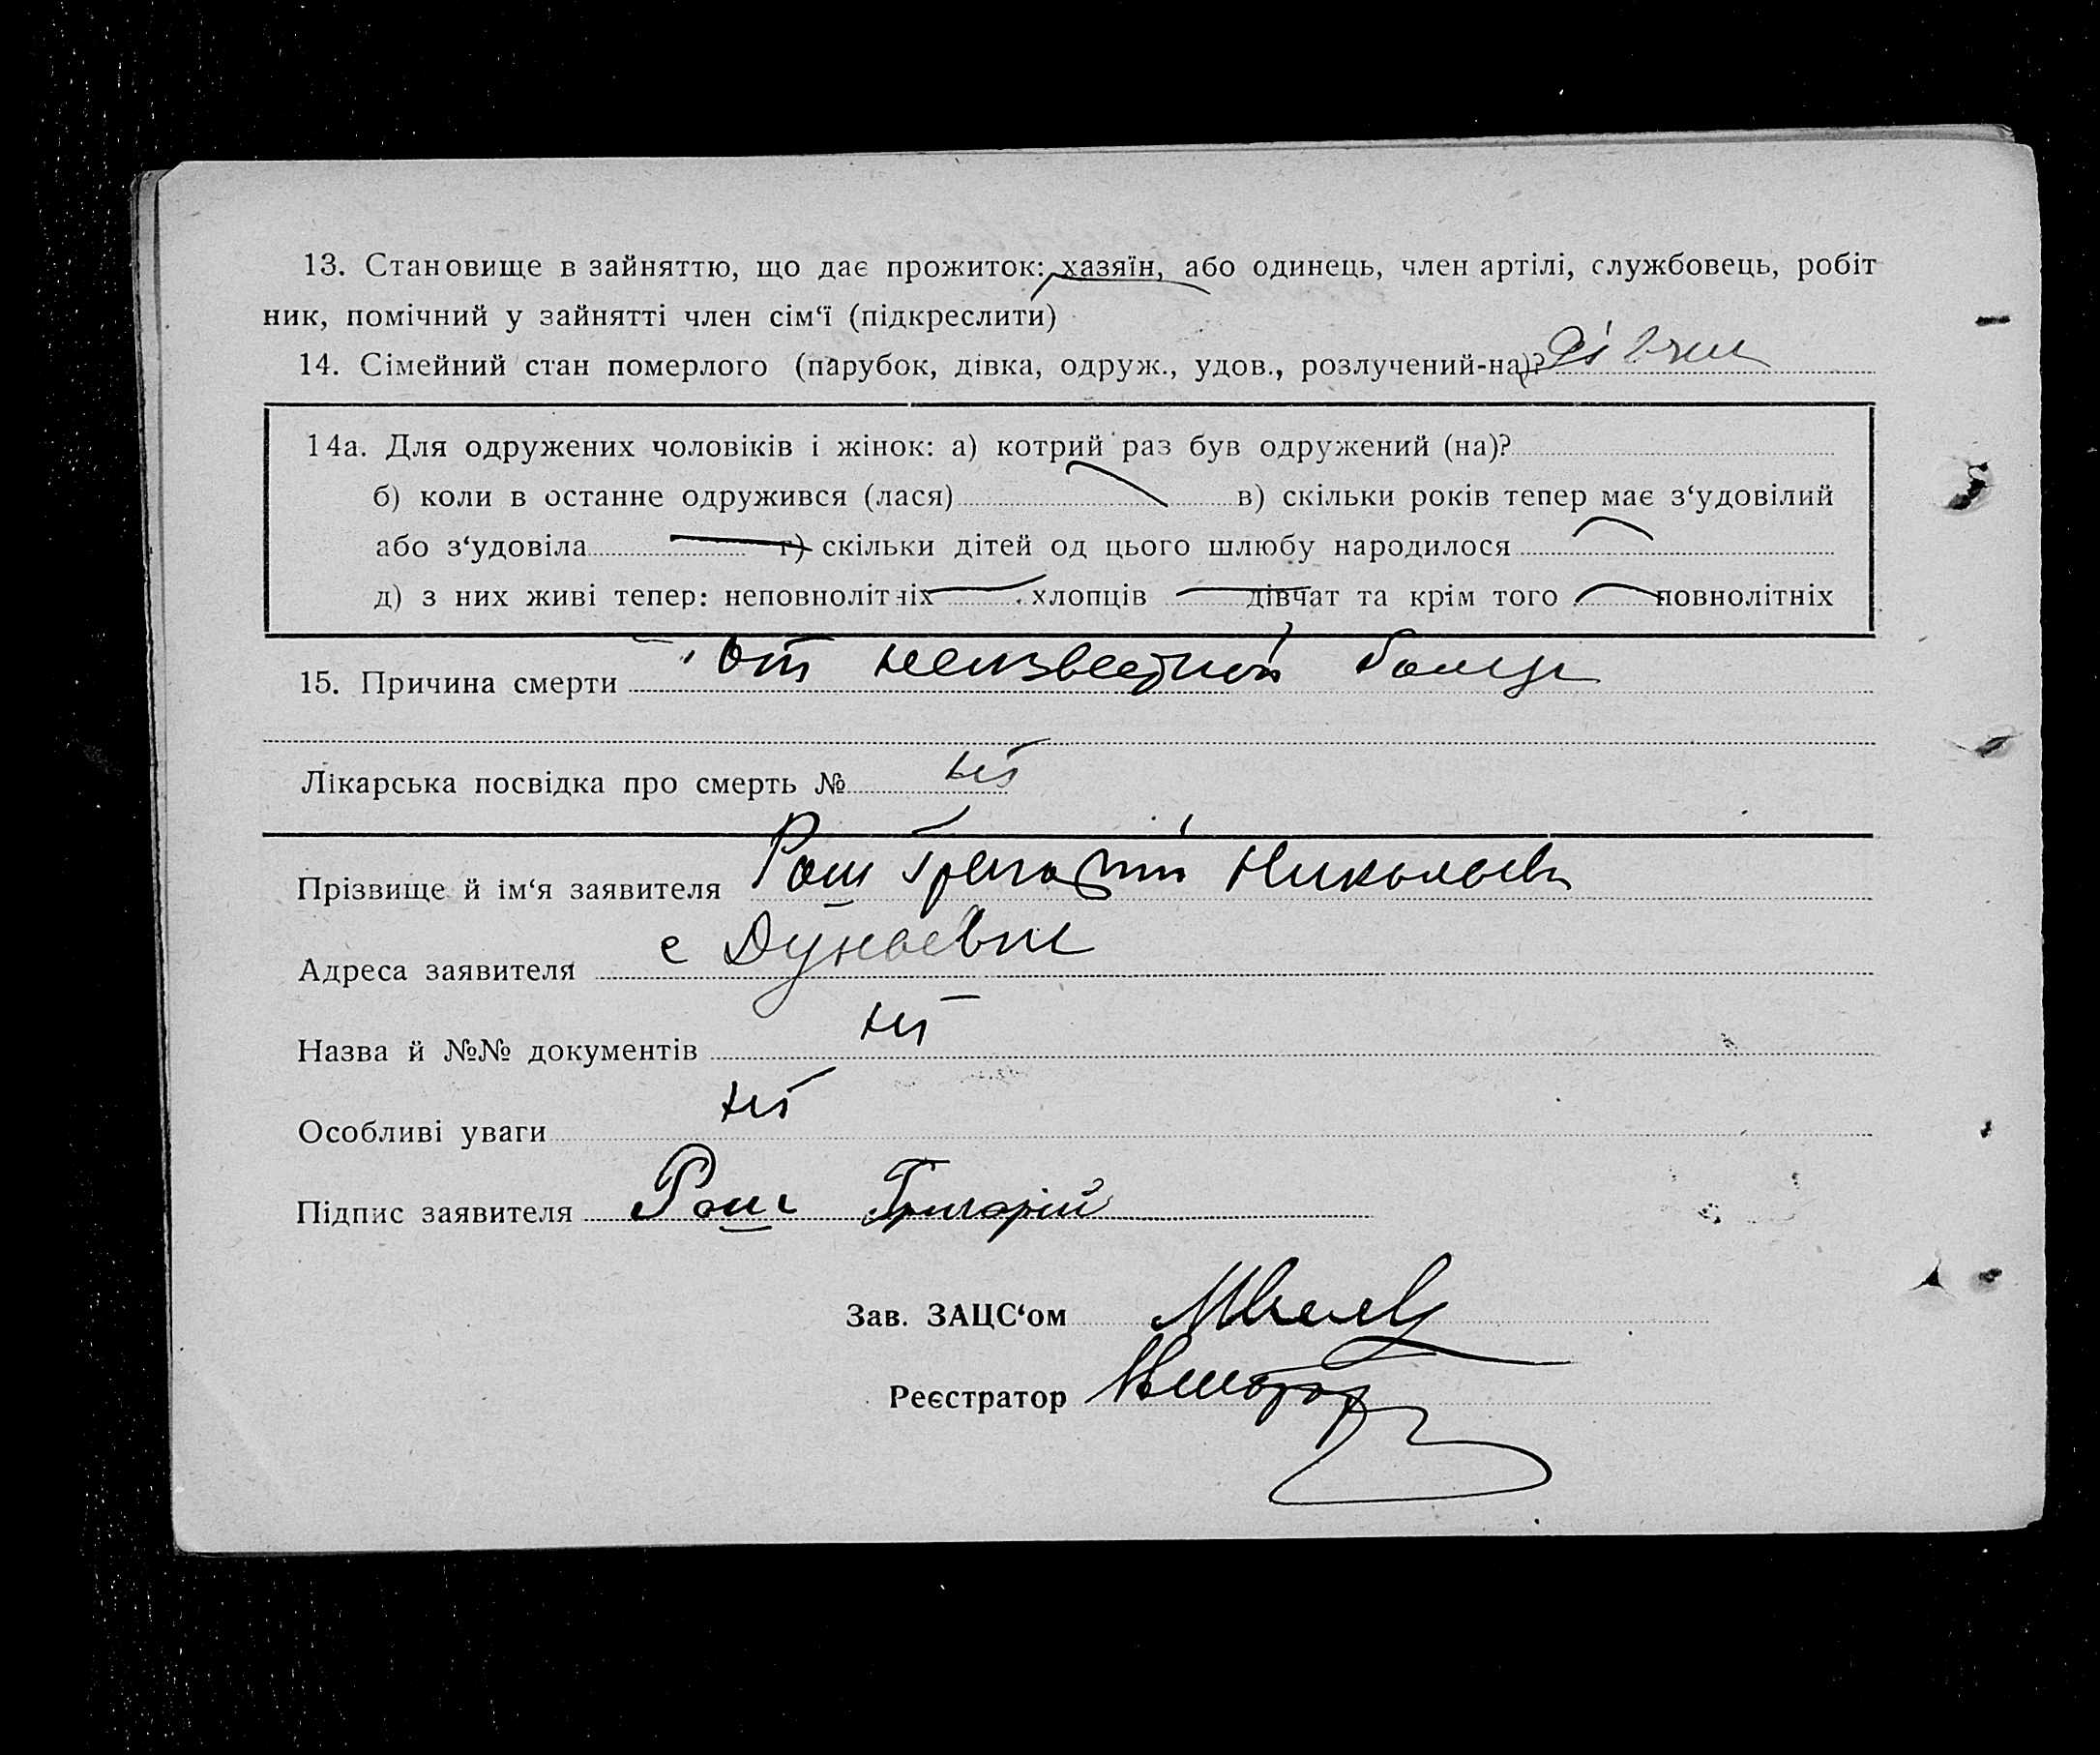 13. Становище в зайняттю, що дає прожиток: хазяїн, або одинець, член артілі, службовець, робіт
ник, помічний у зайнятті член сім‘ї (підкреслити)
14. Сімейний стан померлого (парубок, дівка, одруж., удов., розлучений-на)?
14а. Для одружених чоловіків і жінок: а) котрий раз був одружений (на)?
б) коли в останне одружився (лася) в) скільки років тепер має з‘удовілий
або з‘удовіла г) скільки дітей од цього шлюбу народилося
д) з них живі тепер: неповнолітніх хлопців дівчат та крім того повнолітніх
15. Причина смерти от неизвестной
Лікарська посвідка про смерть № нет
Прізвище й ім‘я заявителя Рош Григорий
Адреса заявителя с Дунаевки
Назва й №№ документів нет
Особливі уваги нет
Підпис заявителя Рош Григорій
Зав. ЗАЦС‘ом
Реєстратор